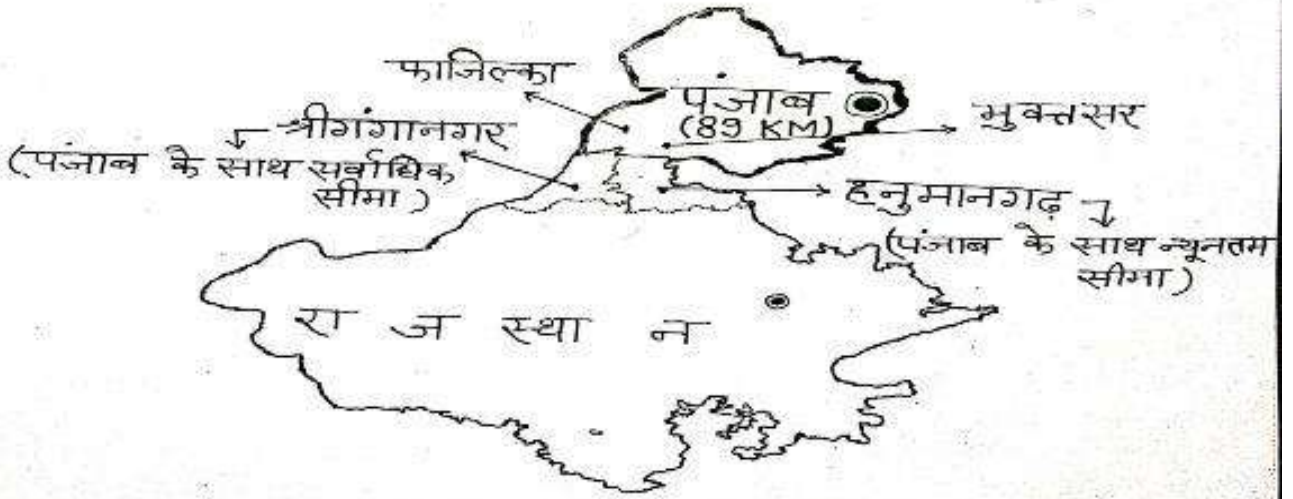 फाजिल्का
पंजाब
(89 KM)
मुक्तसर
श्रीगंगानगर
(पंजाब के साथ सर्वाधिक
सीमा)
हनुमानगढ़
(पंजाब के साथ न्यूनतम
सीमा)
राजस्थान